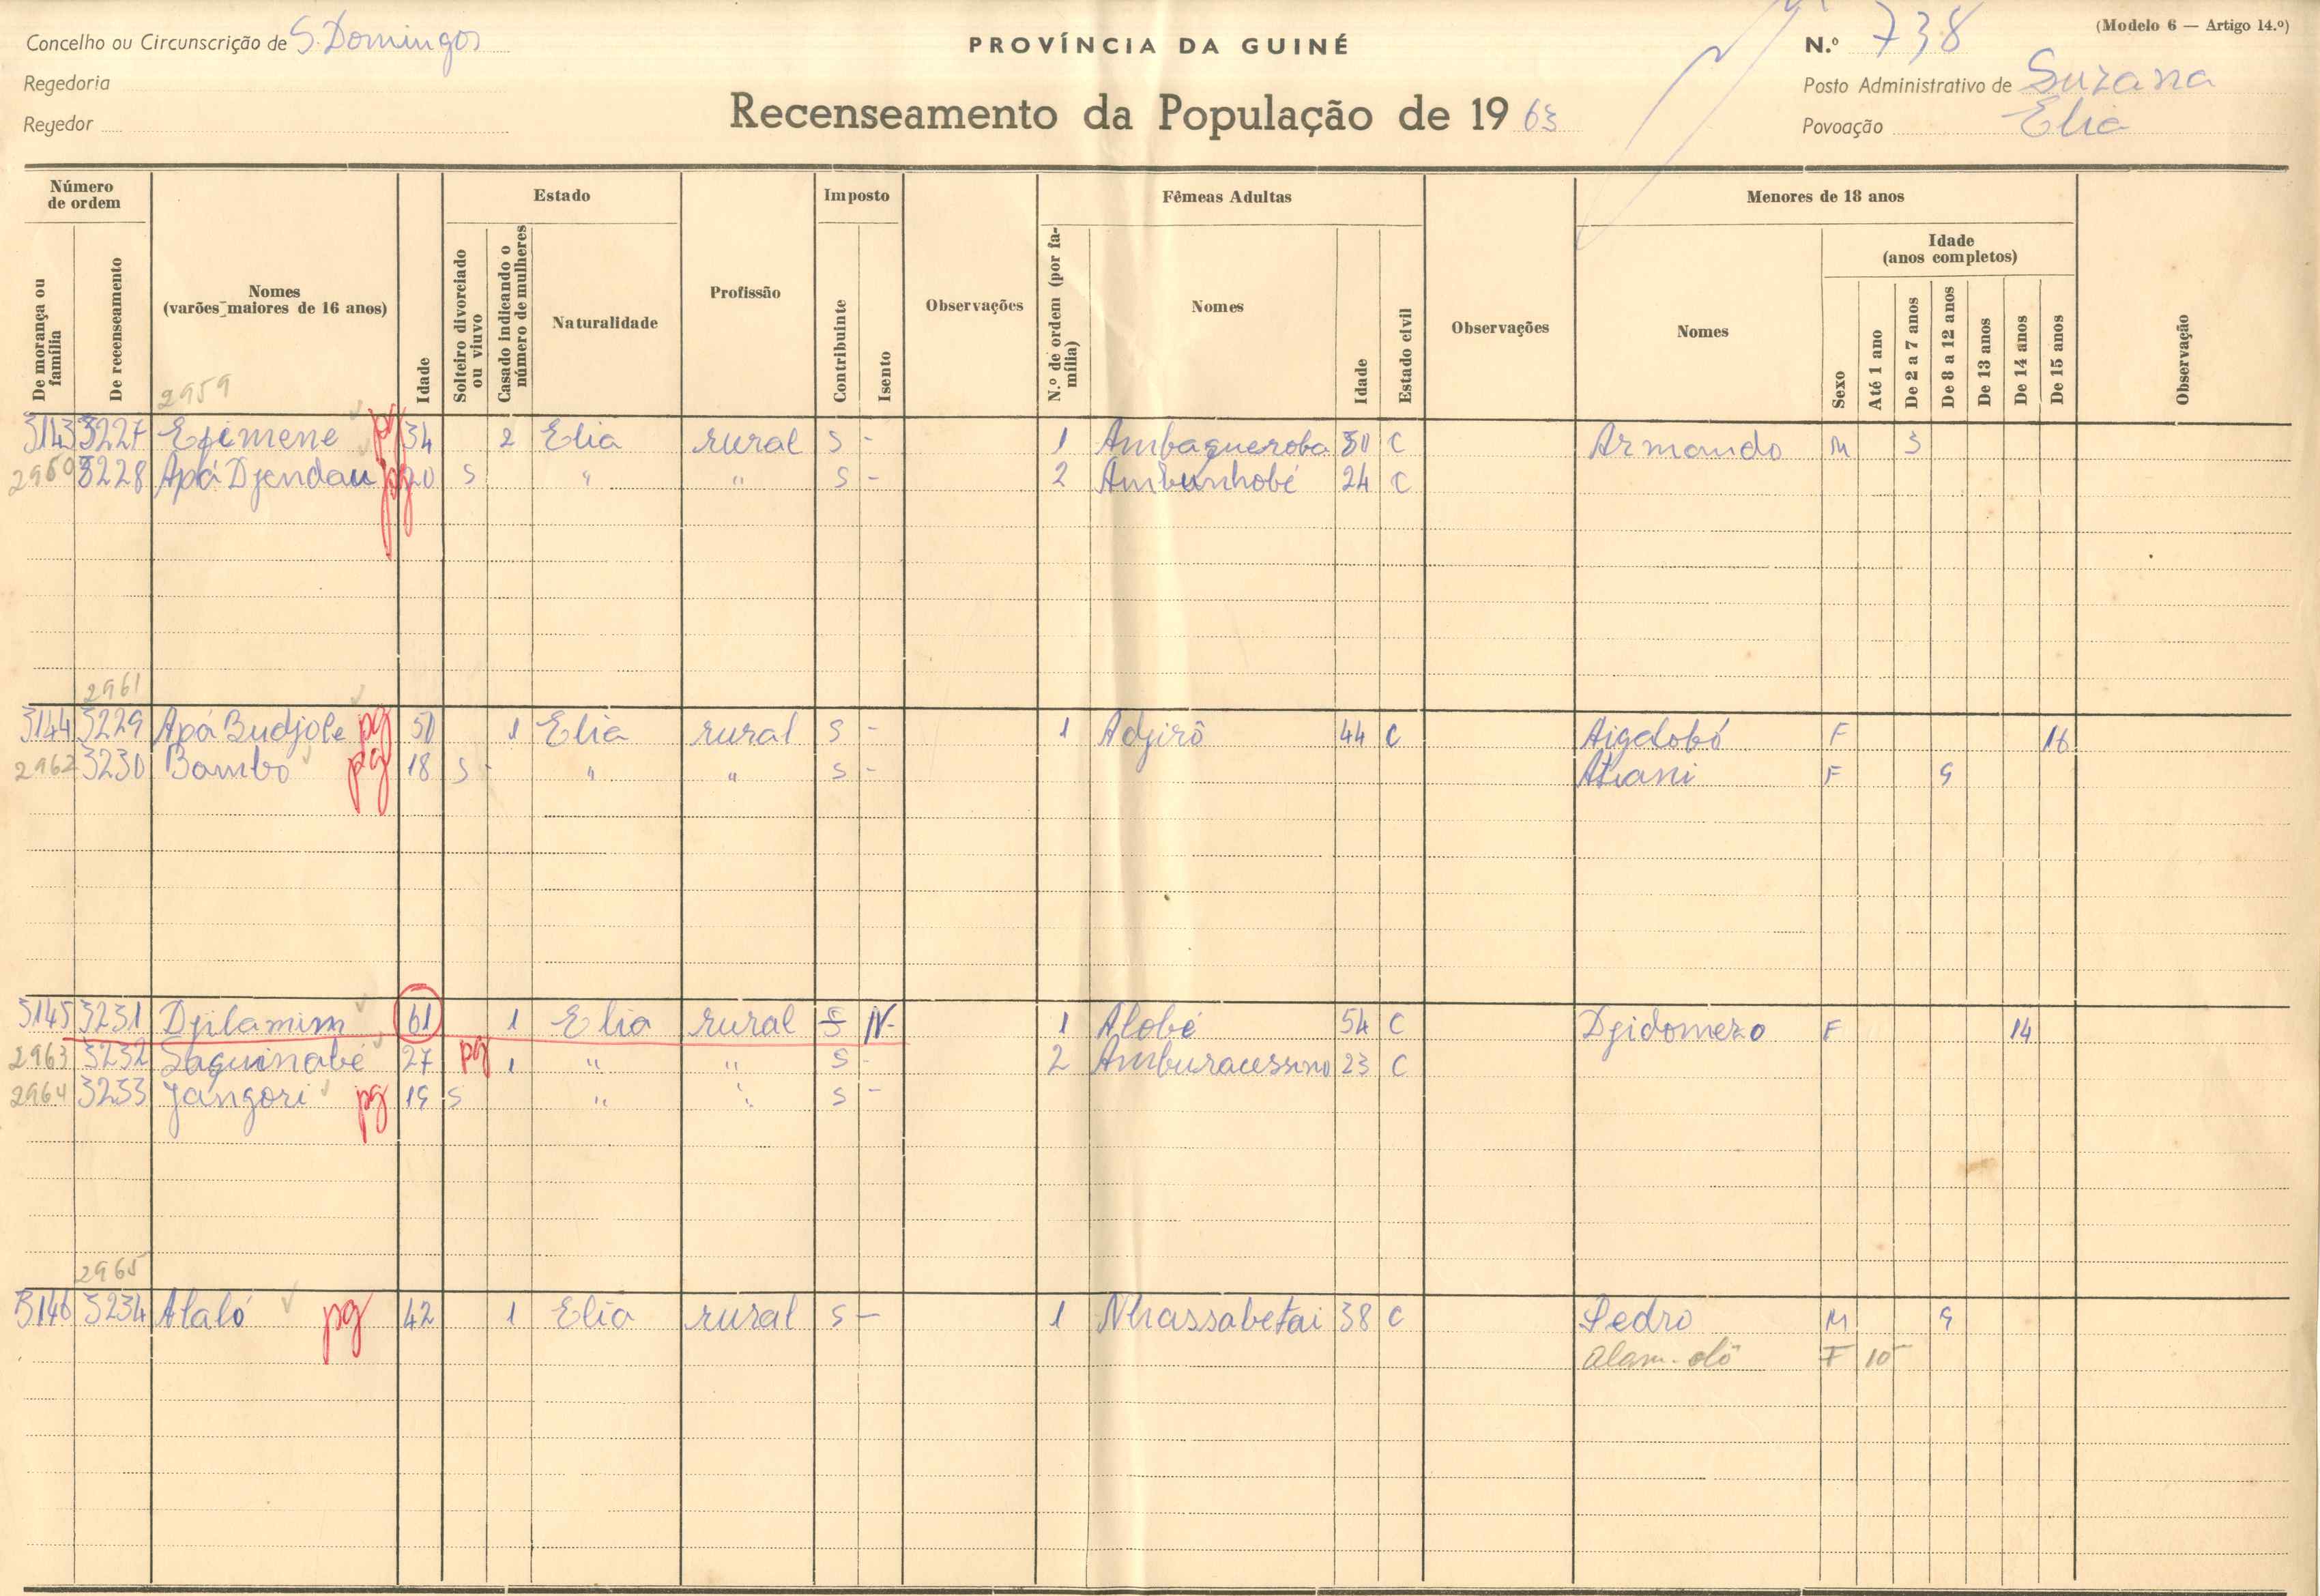 (Modelo 6 — Artigo 14.º)
Concelho ou Circunscrição de S. Domingos
PROVÍNCIA DA GUINÉ
N.º 738
Regedoria
Posto Administrativo de Suzana
Regedor
Recenseamento da População de 19 63
Povoação Elia
Número de ordem
Estado
Imposto
Fêmeas Adultas
Menores de 18 anos
De morança ou família
De recenseamento
Nomes (varões maiores de 16 anos)
Idade
Solteiro divorciado ou viuvo
Casado indicando o número de mulheres
Naturalidade
Profissão
Contribuinte
Isento
Observações
N.º de ordem (por família)
Nomes
Idade
Estado civil
Observações
Nomes
Sexo
Idade (anos completos)
Até 1 ano
De 2 a 7 anos
De 8 a 12 anos
De 13 anos
De 14 anos
De 15 anos
Observação
2959
3143 3227 Efimene pg 34 2 Elia rural S - 1 Ambagueroba 30 C Armando M 3
2960 3228 Apá Djendau pg 20 S " " S - 2 Ambunhobé 24 C
2961
3144 3229 Apá Budjole pg 51 1 Elia rural S - 1 Adjirô 44 C Aigalobó F 16
2962 3230 Bambo pg 18 S - " " S - Atiani F 9
3145 3231 Djilamim 61 1 Elia rural S IV- 1 Alobé 54 C Djidomezo F 14
2963 3232 Saguinabé 27 pg 1 " " S - 2 Amburacessino 23 C
2964 3233 Jangori pg 19 S " " S -
2965
3146 3234 Alaló pg 42 1 Elia rural S - 1 Nhassabetai 38 C Pedro M 9
F 10